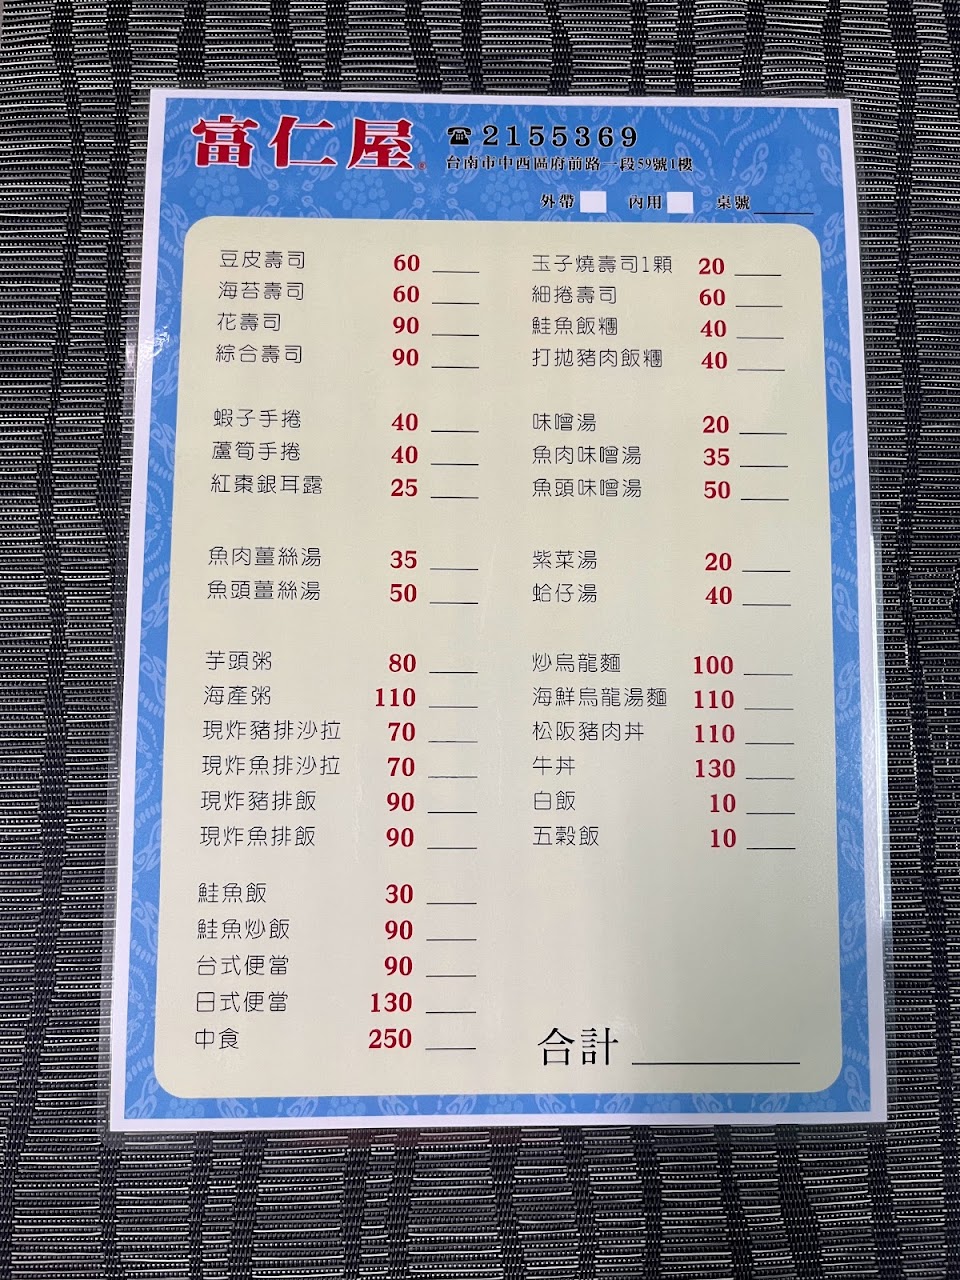 富仁屋
☎2155369
台南市中西區府前路一段59號1樓
外帶 內用 桌號
豆皮壽司 60
海苔壽司 60
花壽司 90
綜合壽司 90
蝦子手捲 40
蘆筍手捲 40
紅棗銀耳露 25
魚肉薑絲湯 35
魚頭薑絲湯 50
芋頭粥 80
海產粥 110
現炸豬排沙拉 70
現炸魚排沙拉 70
現炸豬排飯 90
現炸魚排飯 90
鮭魚飯 30
鮭魚炒飯 90
台式便當 90
日式便當 130
中食 250
玉子燒壽司1顆 20
細捲壽司 60
鮭魚飯糰 40
打拋豬肉飯糰 40
味噌湯 20
魚肉味噌湯 35
魚頭味噌湯 50
紫菜湯 20
蛤仔湯 40
炒烏龍麵 100
海鮮烏龍湯麵 110
松阪豬肉丼 110
牛丼 130
白飯 10
五穀飯 10
合計